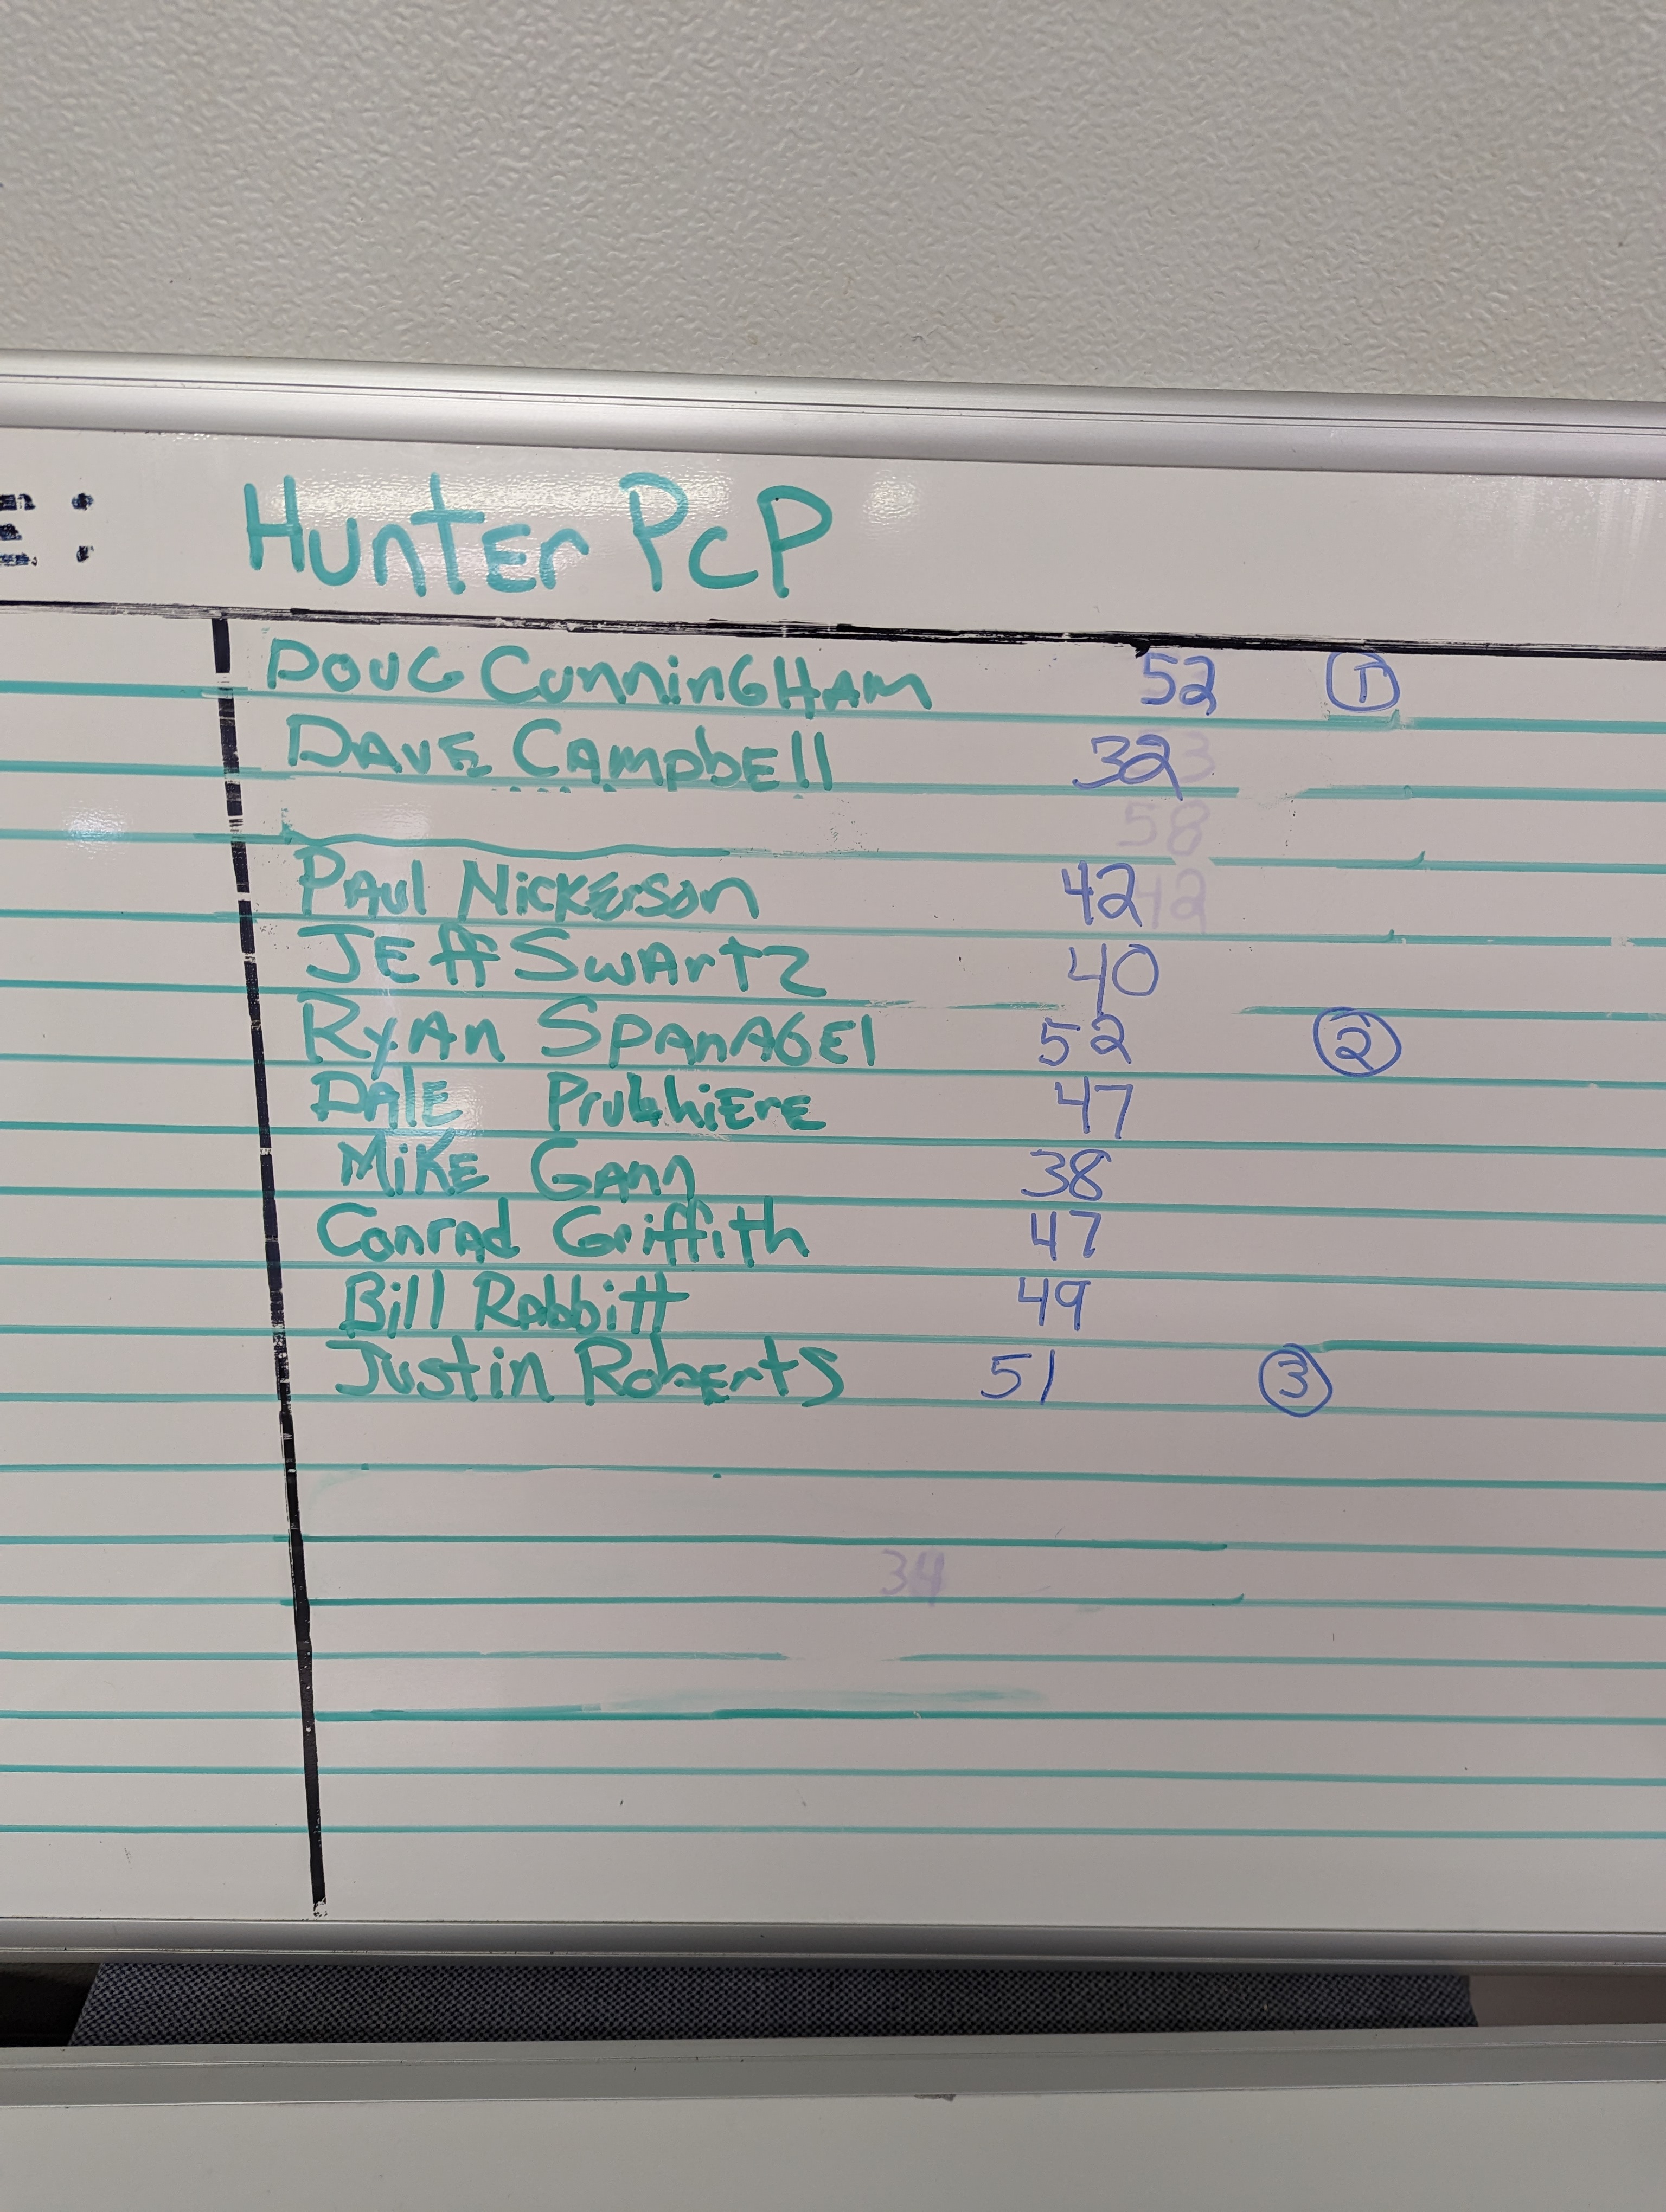 E: Hunter PcP
Doug Cunningham 52 1
Dave Campbell 32
58
Paul Nickerson 42 42
Jeff Swartz 40
Ryan Spanagel 52 2
Dale 47
Mike Gann 38
Conrad Griffith 47
Bill Rabbitt 49
Justin Roberts 51 3
34